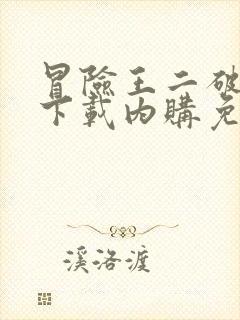 冒險王二破
下載內購免
溪洛渡